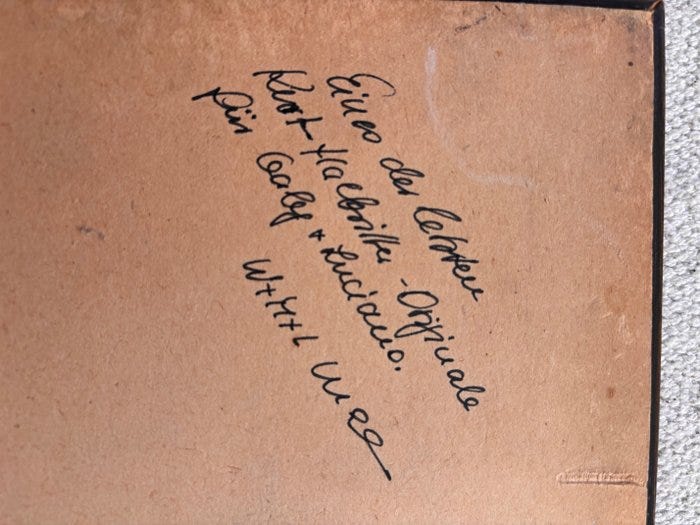 Eines der letzten
Kurt Halbritter - Originale
für Gaby + Luciano.
W+M+L